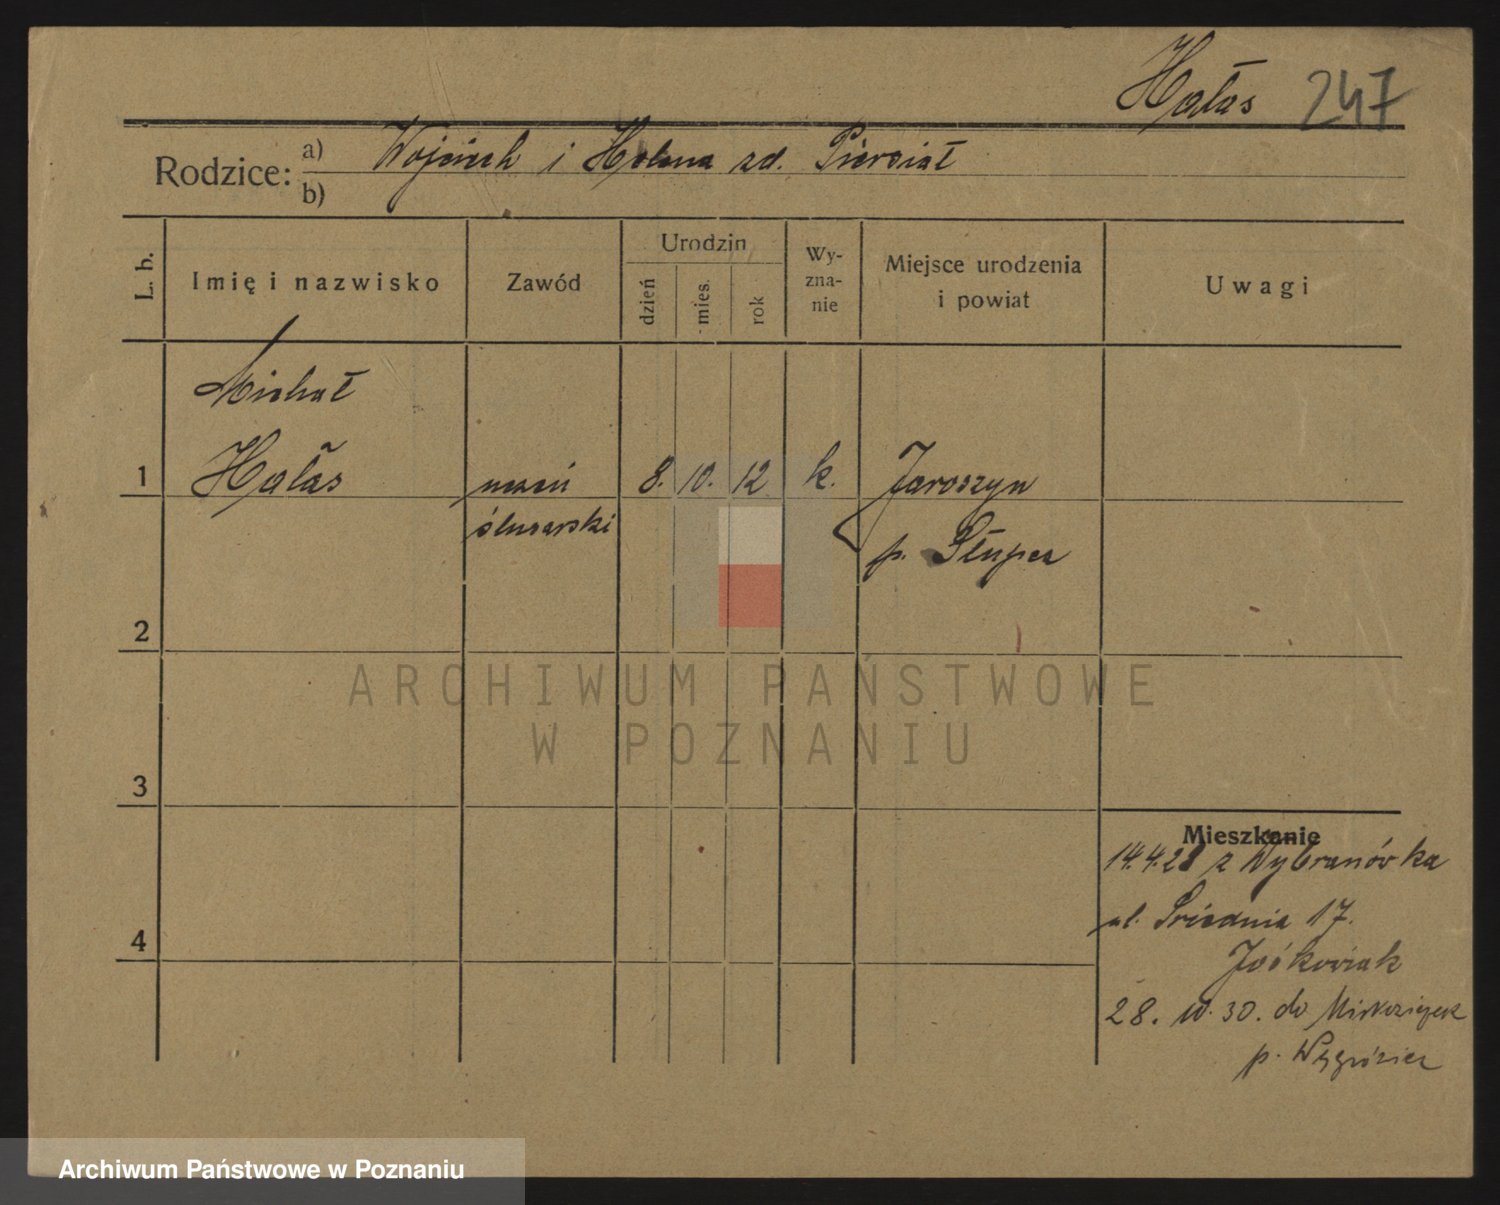 Hałas 247
Rodzice: a) Wojciech i Helena zd. Piersiał
b)
L. b. Imię i nazwisko Zawód Urodzin dzień mies. rok Wy-zna-nie Miejsce urodzenia i powiat Uwagi
Michał
1 Hałas uczeń 8. 10. 12 k. Jaroszyn
ślusarski p. Słupca
2
ARCHIWUM PAŃSTWOWE
W POZNANIU
3
Mieszkanie
14.4.28 z Wybranówka
ul. Średnia 17.
4
Jóśkowiak
28. 10. 30. do
p. Wągrówiec
Archiwum Państwowe w Poznaniu